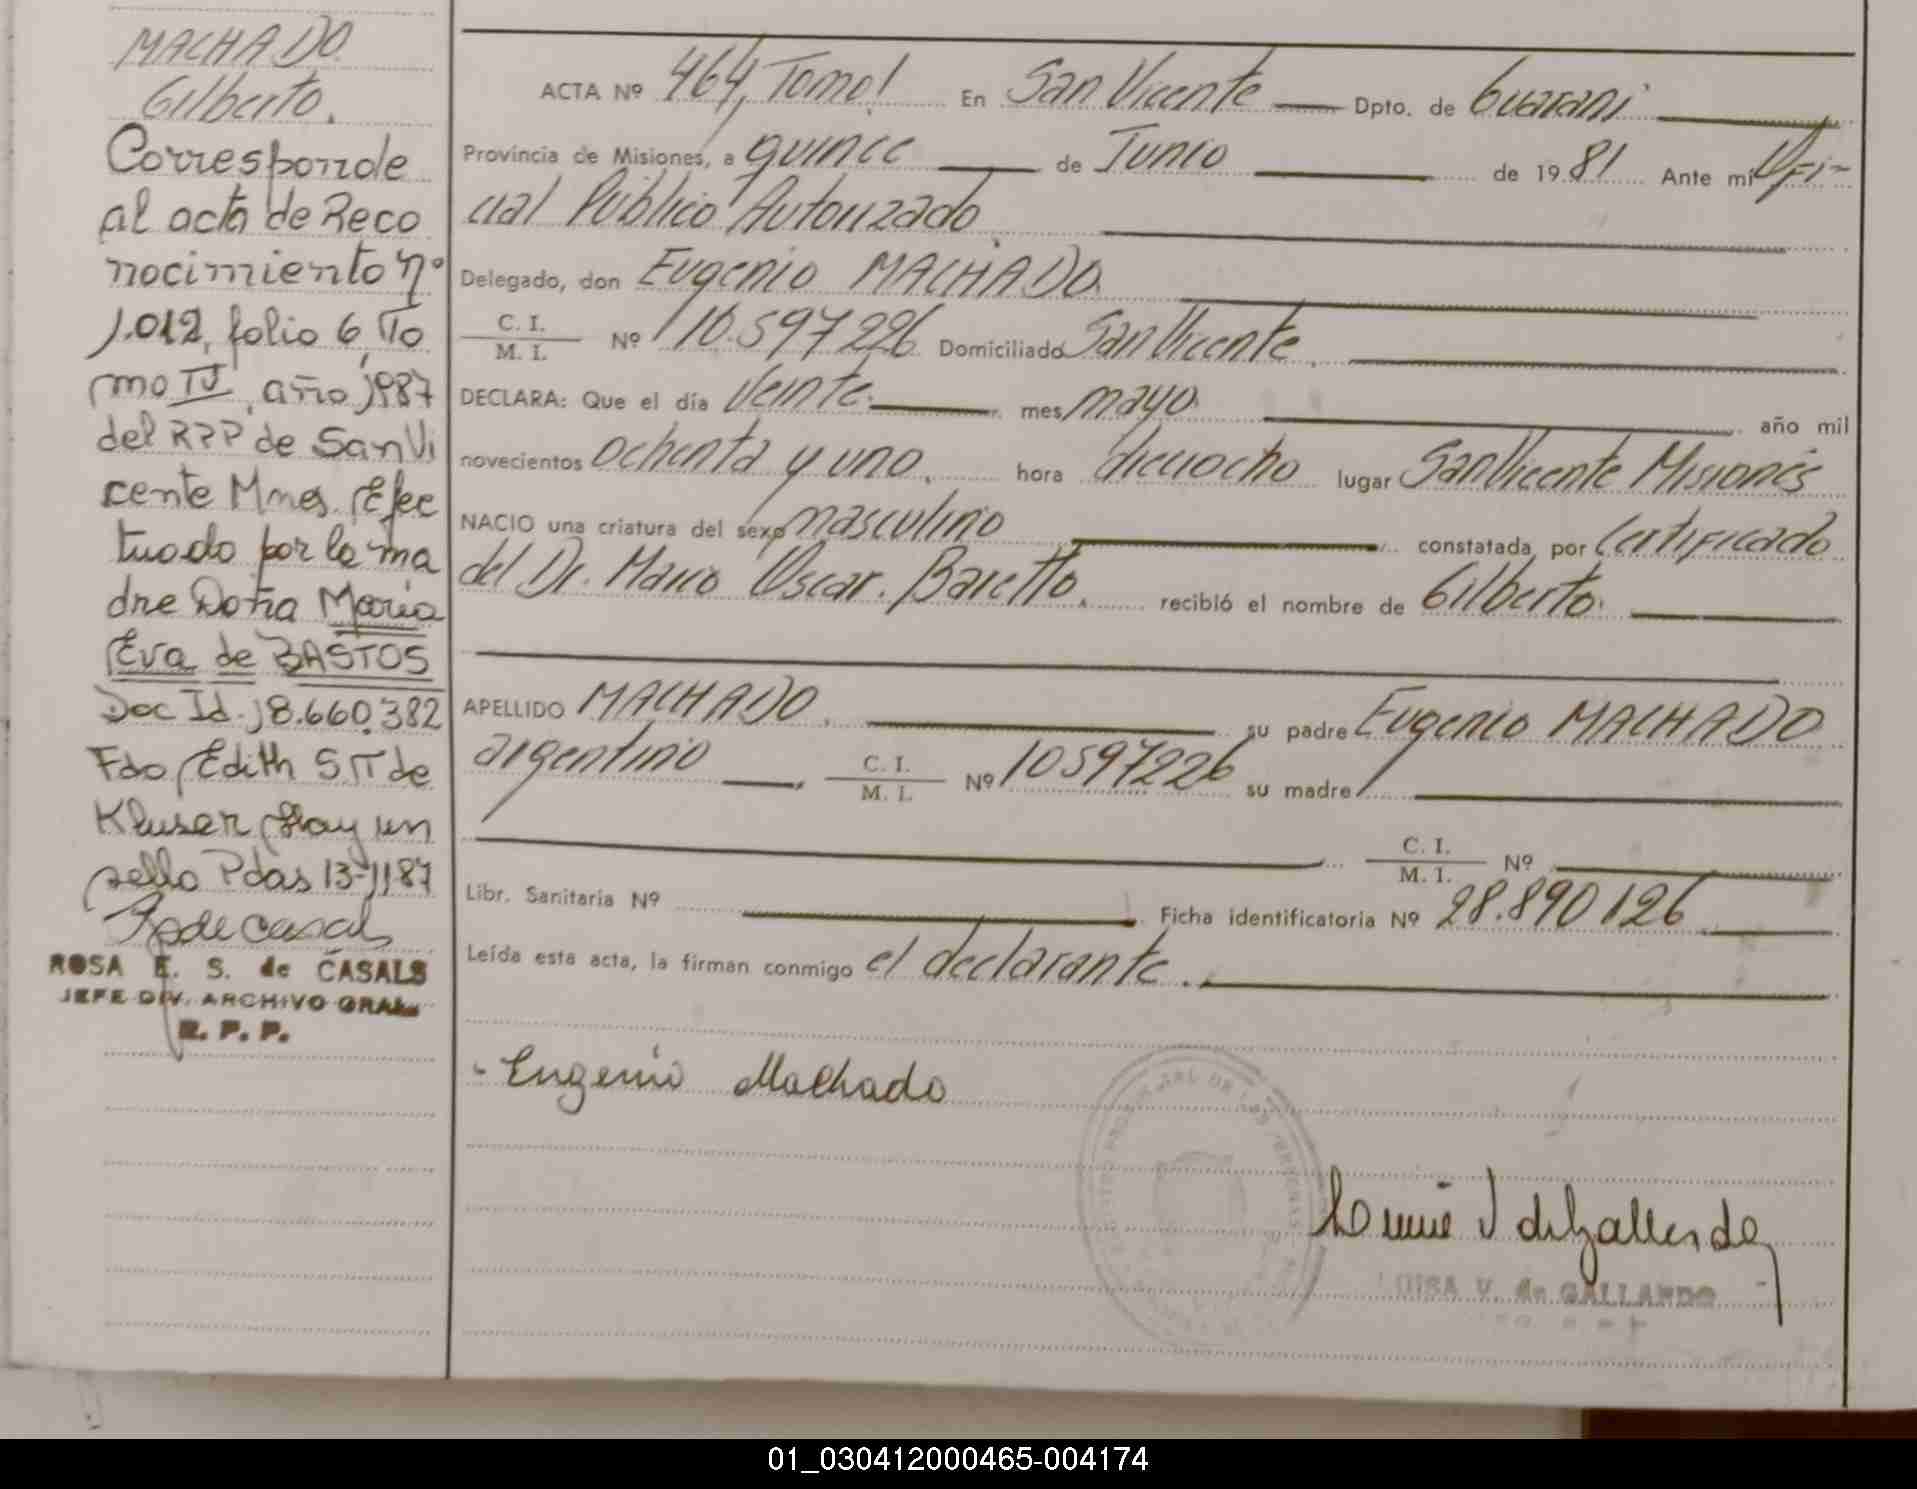 MACHADO.
Gilberto.
Corresponde
al acta de Reco
nocimiento nº
1.012, folio 6, To
mo II, año 1987
del RPP de San Vi
cente Mnes. Efec
tuado por la ma
dre Doña María
Eva de BASTOS
Doc Id. 18.660.382
Fdo. Edith S de
Kluser Hay un
sello Pdas 13-11-87
R de Casals
ROSA E. S. de CASALS
JEFE DIV. ARCHIVO GRAL.
R. P. P.
ACTA Nº 464, Tomo I En San Vicente Dpto. de Guaraní
Provincia de Misiones, a quince de Junio de 19 81 Ante mí Ofi-
cial Público Autorizado.
Delegado, don Eugenio MACHADO.
C. I.
M. I. Nº 10.597.226 Domiciliado San Vicente.
DECLARA: Que el día Veinte mes mayo año mil
novecientos ochenta y uno. hora dieciocho lugar San Vicente Misiones
NACIO una criatura del sexo masculino constatada por Certificado
del Dr. Mario Oscar. Baretto. recibió el nombre de Gilberto.
APELLIDO MACHADO. su padre Eugenio MACHADO
argentino C. I.
M. I. Nº 10597226 su madre
C. I.
M. I. Nº
Libr. Sanitaria Nº Ficha identificatoria Nº 28.890126
Leída esta acta, la firman conmigo el declarante.
Eugenio Machado
Luisa V de Gallardo
LUISA V. de GALLARDO
01_030412000465-004174